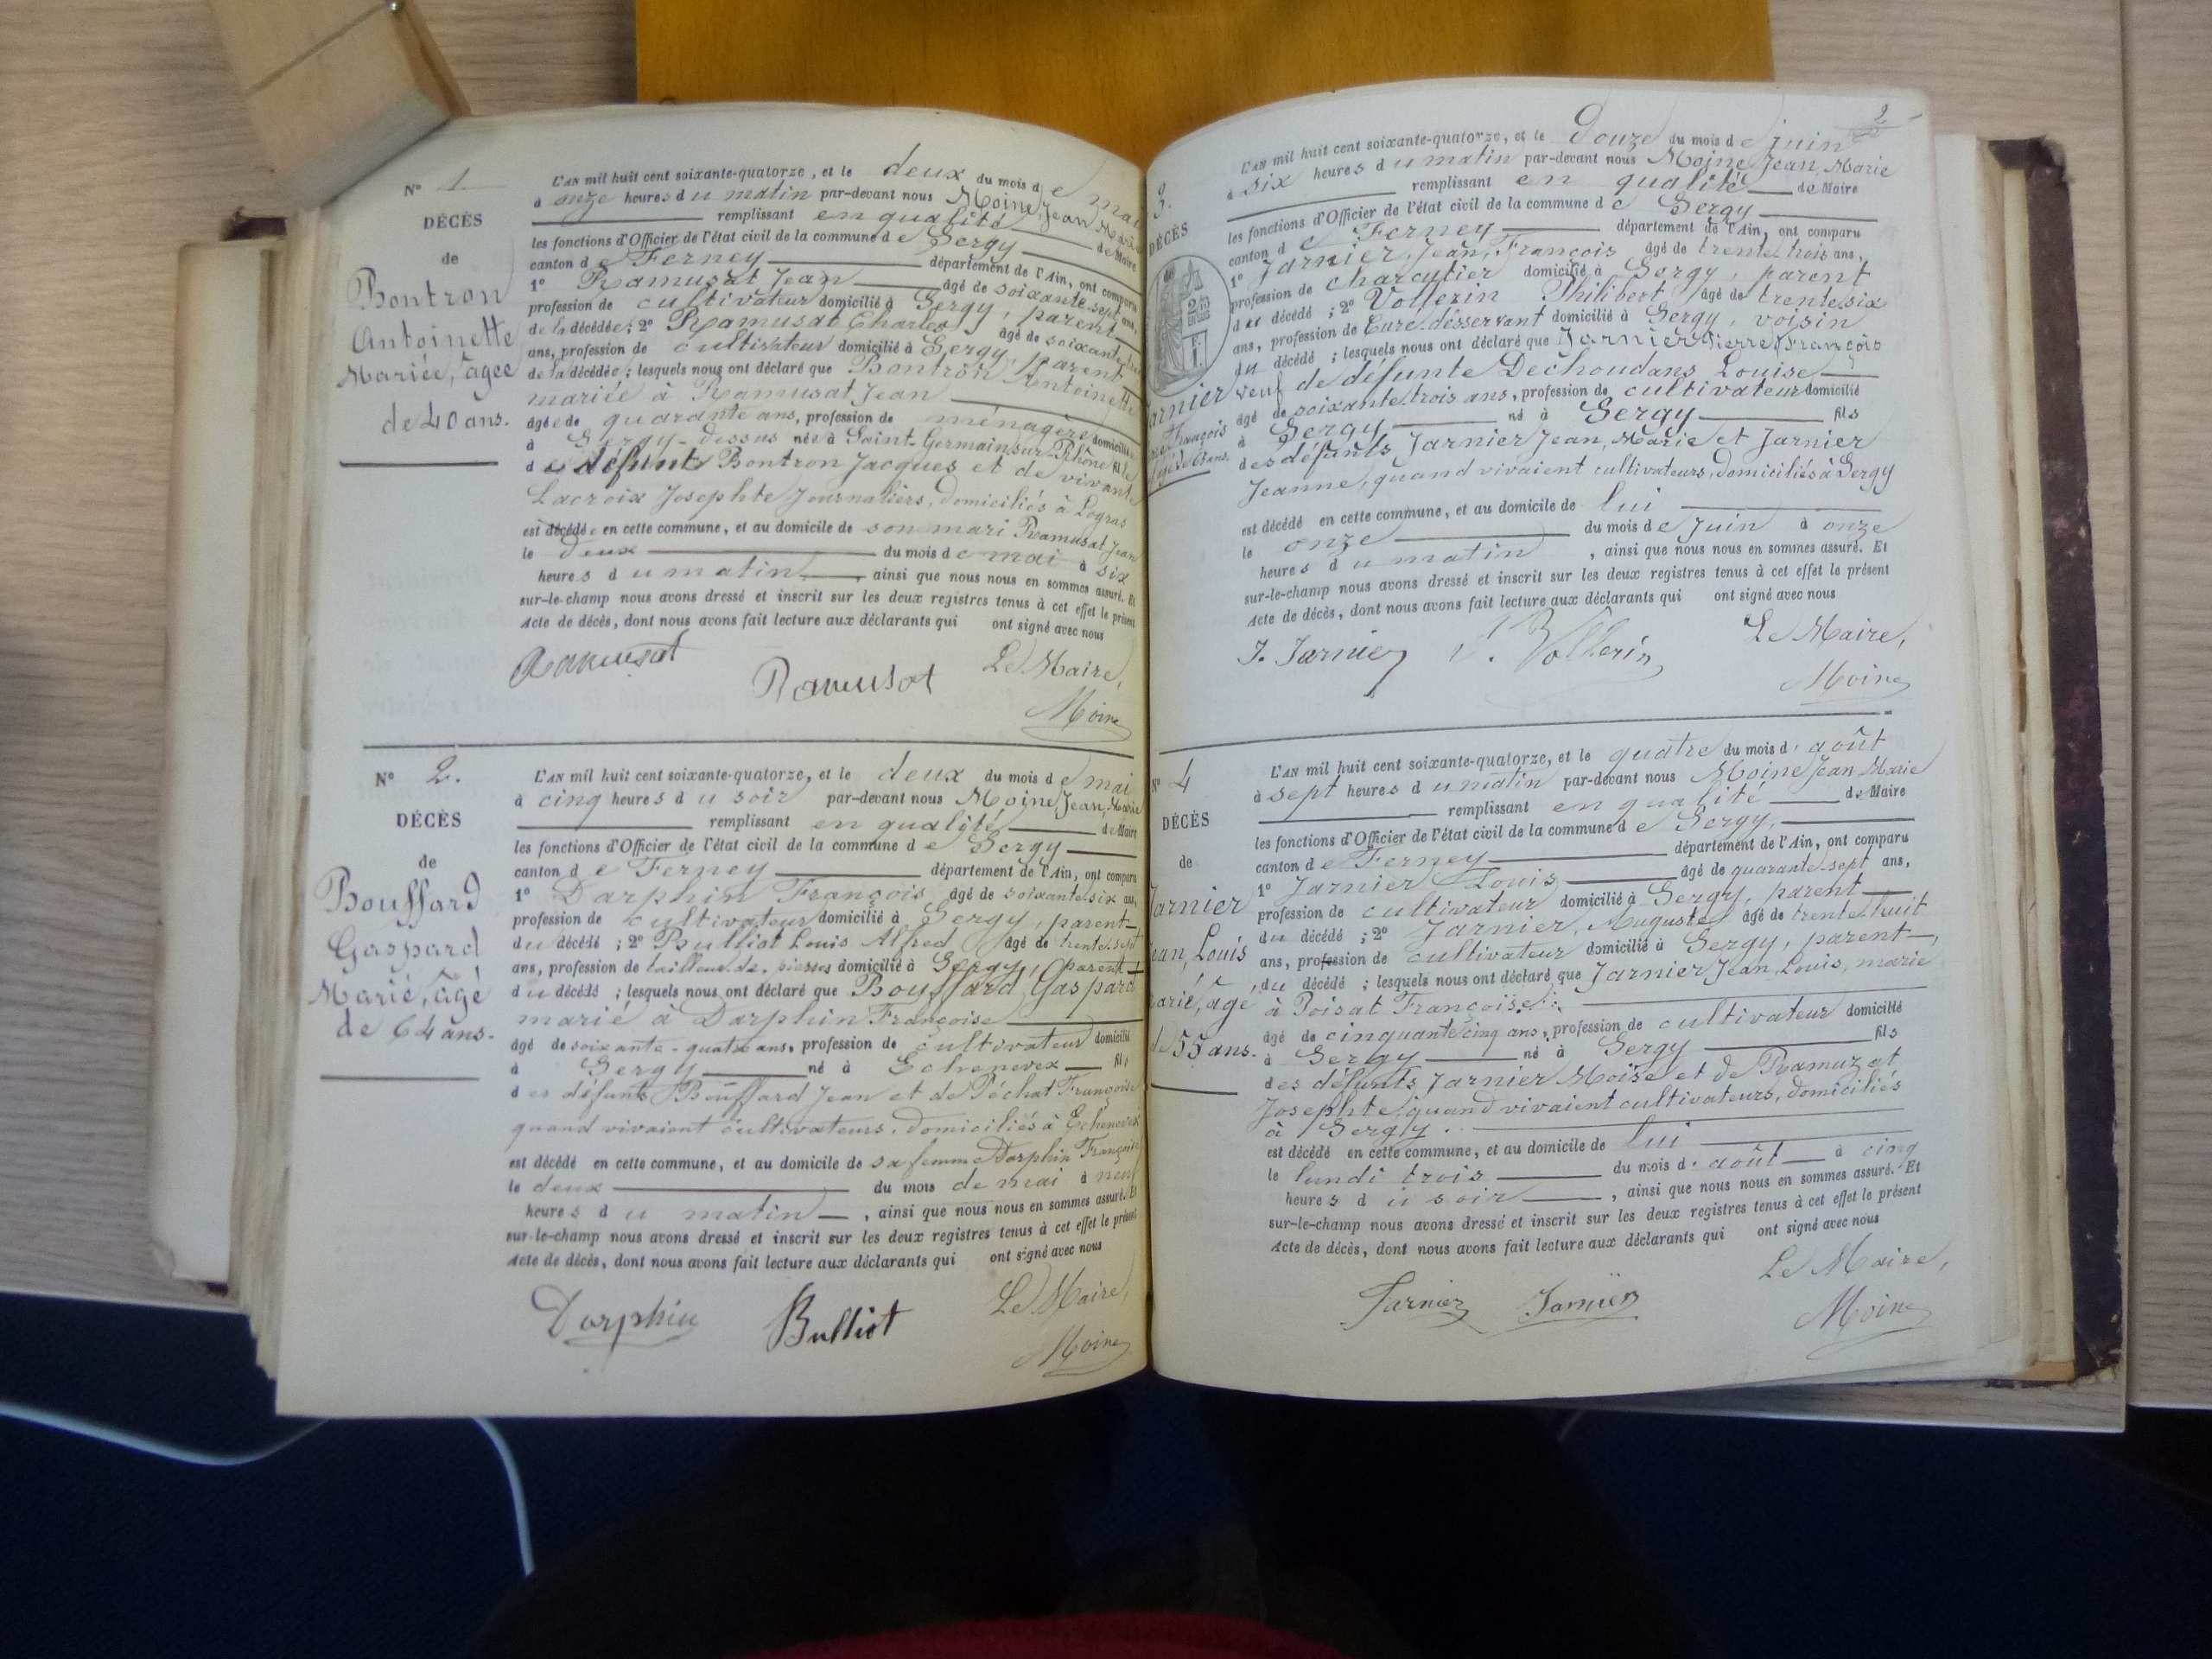 N° 1
DÉCÈS
de
Bontron
Antoinette
Mariée, âgée
de 40 ans.
L'AN mil huit cent soixante-quatorze, et le deux du mois de mai
à onze heures du matin par-devant nous Moine, Jean, Marie
remplissant en qualité de Maire
les fonctions d'Officier de l'état civil de la commune de Sergy
canton de Ferney département de l'Ain, ont comparu
1° Ramusat Jean âgé de soixante-sept ans,
profession de cultivateur domicilié à Sergy, parent
de la décédée; 2° Ramusat Charles âgé de soixante
ans, profession de cultivateur domicilié à Sergy, parent
de la décédée; lesquels nous ont déclaré que Bontron Antoinette
mariée à Ramusat Jean
âgée de quarante ans, profession de ménagère domiciliée
à Sergy-dessus née à Saint-Germain-sur-Rhône fille
de défunt Bontron Jacques et de vivante
Lacroix Josephte Journaliers, domiciliés à Logras
est décédée en cette commune, et au domicile de son mari Ramusat Jean
le deux du mois de mai à six
heures du matin ainsi que nous nous en sommes assuré. Et
sur-le-champ nous avons dressé et inscrit sur les deux registres tenus à cet effet le présent
Acte de décès, dont nous avons fait lecture aux déclarants qui ont signé avec nous
Le Maire,
Ramusat Ramusat
Moine
N° 2.
DÉCÈS
de
Bouffard
Gaspard
Marié, âgé
de 64 ans.
L'AN mil huit cent soixante-quatorze, et le deux du mois de mai
à cinq heures du soir par-devant nous Moine, Jean, Marie
remplissant en qualité de Maire
les fonctions d'Officier de l'état civil de la commune de Sergy
canton de Ferney département de l'Ain, ont comparu
1° Darphin François âgé de soixante-six ans,
profession de cultivateur domicilié à Sergy, parent
du décédé; 2° Bulliat Louis Alfred âgé de trente-sept
ans, profession de tailleur de pierres domicilié à Sergy, parent
du décédé; lesquels nous ont déclaré que Bouffard Gaspard
marié à Darphin Françoise
âgé de soixante-quatre ans, profession de cultivateur domicilié
à Sergy né à Echenevex fils
des défunts Bouffard Jean et de Péchat Françoise
quand vivaient cultivateurs, domiciliés à Echenevex
est décédé en cette commune, et au domicile de sa femme Darphin Françoise
le deux du mois de mai à neuf
heures du matin, ainsi que nous nous en sommes assuré. Et
sur-le-champ nous avons dressé et inscrit sur les deux registres tenus à cet effet le présent
Acte de décès, dont nous avons fait lecture aux déclarants qui ont signé avec nous
Le Maire,
Darphin Bulliot
Moine
2
3.
DÉCÈS
Jarnier
François
L'AN mil huit cent soixante-quatorze, et le Douze du mois de juin
à six heures du matin par-devant nous Moine, Jean, Marie
remplissant en qualité de Maire
les fonctions d'Officier de l'état civil de la commune de Sergy
canton de Ferney département de l'Ain, ont comparu
1° Jarnier, Jean, François âgé de trente trois ans,
profession de charcutier domicilié à Sergy, parent
du décédé; 2° Vollerin Philibert âgé de trente-six
ans, profession de Curé desservant domicilié à Sergy, voisin
du décédé; lesquels nous ont déclaré que Jarnier Pierre François
veuf de défunte Dechoudans Louise
âgé de soixante-trois ans, profession de cultivateur domicilié
à Sergy né à Sergy fils
des défunts Jarnier Jean, Marie et Jarnier
Jeanne, quand vivaient cultivateurs, domiciliés à Sergy
est décédé en cette commune, et au domicile de lui
le onze du mois de Juin à onze
heures du matin, ainsi que nous nous en sommes assuré. Et
sur-le-champ nous avons dressé et inscrit sur les deux registres tenus à cet effet le présent
Acte de décès, dont nous avons fait lecture aux déclarants qui ont signé avec nous
Le Maire,
J. Jarnier Vollerin
Moine
N° 4
DÉCÈS
de
Jarnier
Jean, Louis
Marié, âgé
de 55 ans.
L'AN mil huit cent soixante-quatorze, et le quatre du mois d'août
à sept heures du matin par-devant nous Moine Jean Marie
remplissant en qualité de Maire
les fonctions d'Officier de l'état civil de la commune de Sergy,
canton de Ferney département de l'Ain, ont comparu
1° Jarnier Louis âgé de quarante-sept ans,
profession de cultivateur domicilié à Sergy, parent
du décédé; 2° Jarnier, Auguste âgé de trente-huit
ans, profession de cultivateur domicilié à Sergy, parent,
du décédé; lesquels nous ont déclaré que Jarnier Jean, Louis, marié
à Poisat Françoise
âgé de cinquante-cinq ans, profession de cultivateur domicilié
à Sergy né à Sergy fils
des défunts Jarnier Moïse et de Ramuzat
Josephte, quand vivaient cultivateurs, domiciliés
à Sergy.
est décédé en cette commune, et au domicile de lui
le lundi trois du mois d'août à cinq
heures du soir, ainsi que nous nous en sommes assuré. Et
sur-le-champ nous avons dressé et inscrit sur les deux registres tenus à cet effet le présent
Acte de décès, dont nous avons fait lecture aux déclarants qui ont signé avec nous
Le Maire,
Jarnier Jarnier
Moine